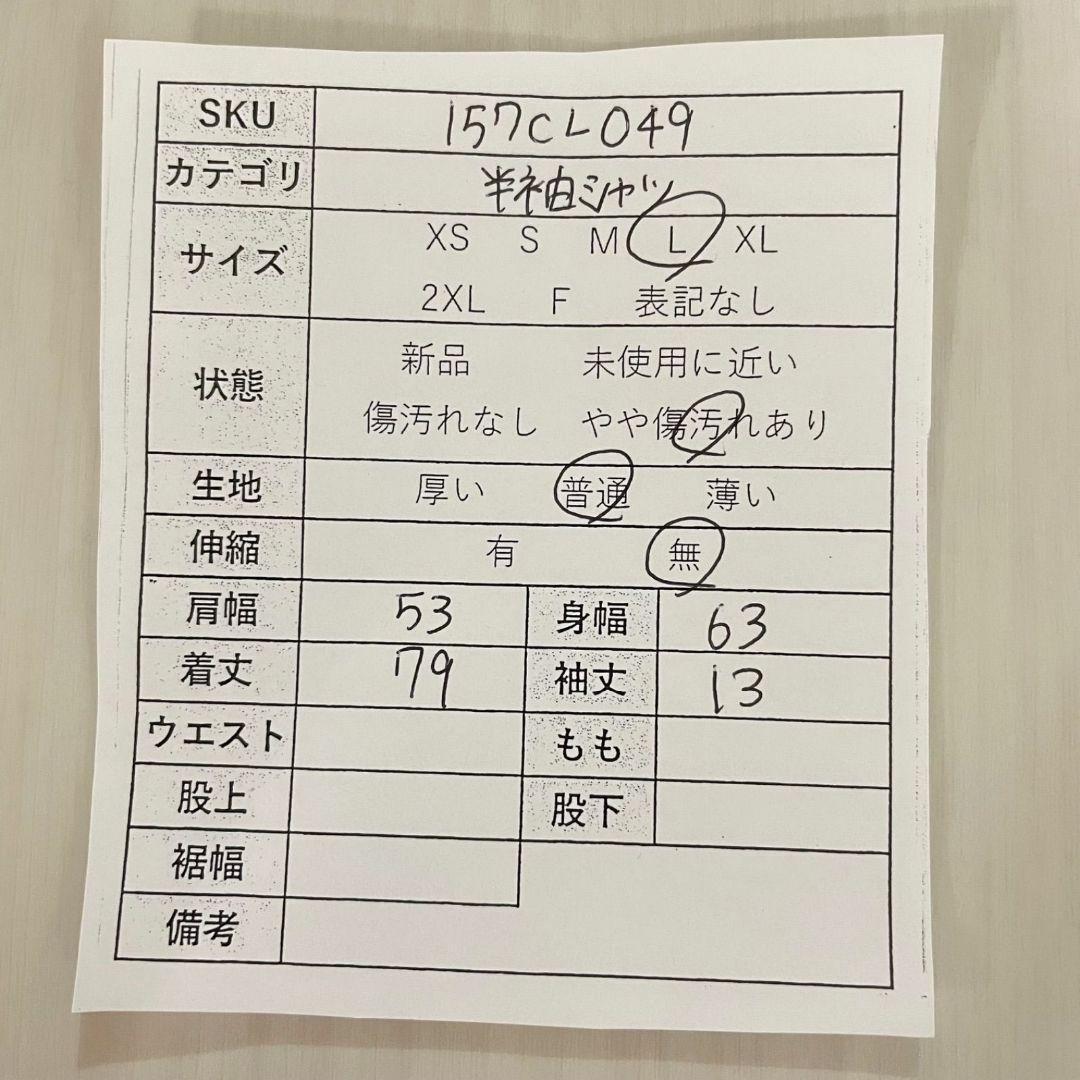 SKU 157CL049
カテゴリ 半袖シャツ
サイズ XS S M L XL
2XL F 表記なし
状態 新品 未使用に近い
傷汚れなし やや傷汚れあり
生地 厚い 普通 薄い
伸縮 有 無
肩幅 53 身幅 63
着丈 79 袖丈 13
ウエスト もも
股上 股下
裾幅
備考